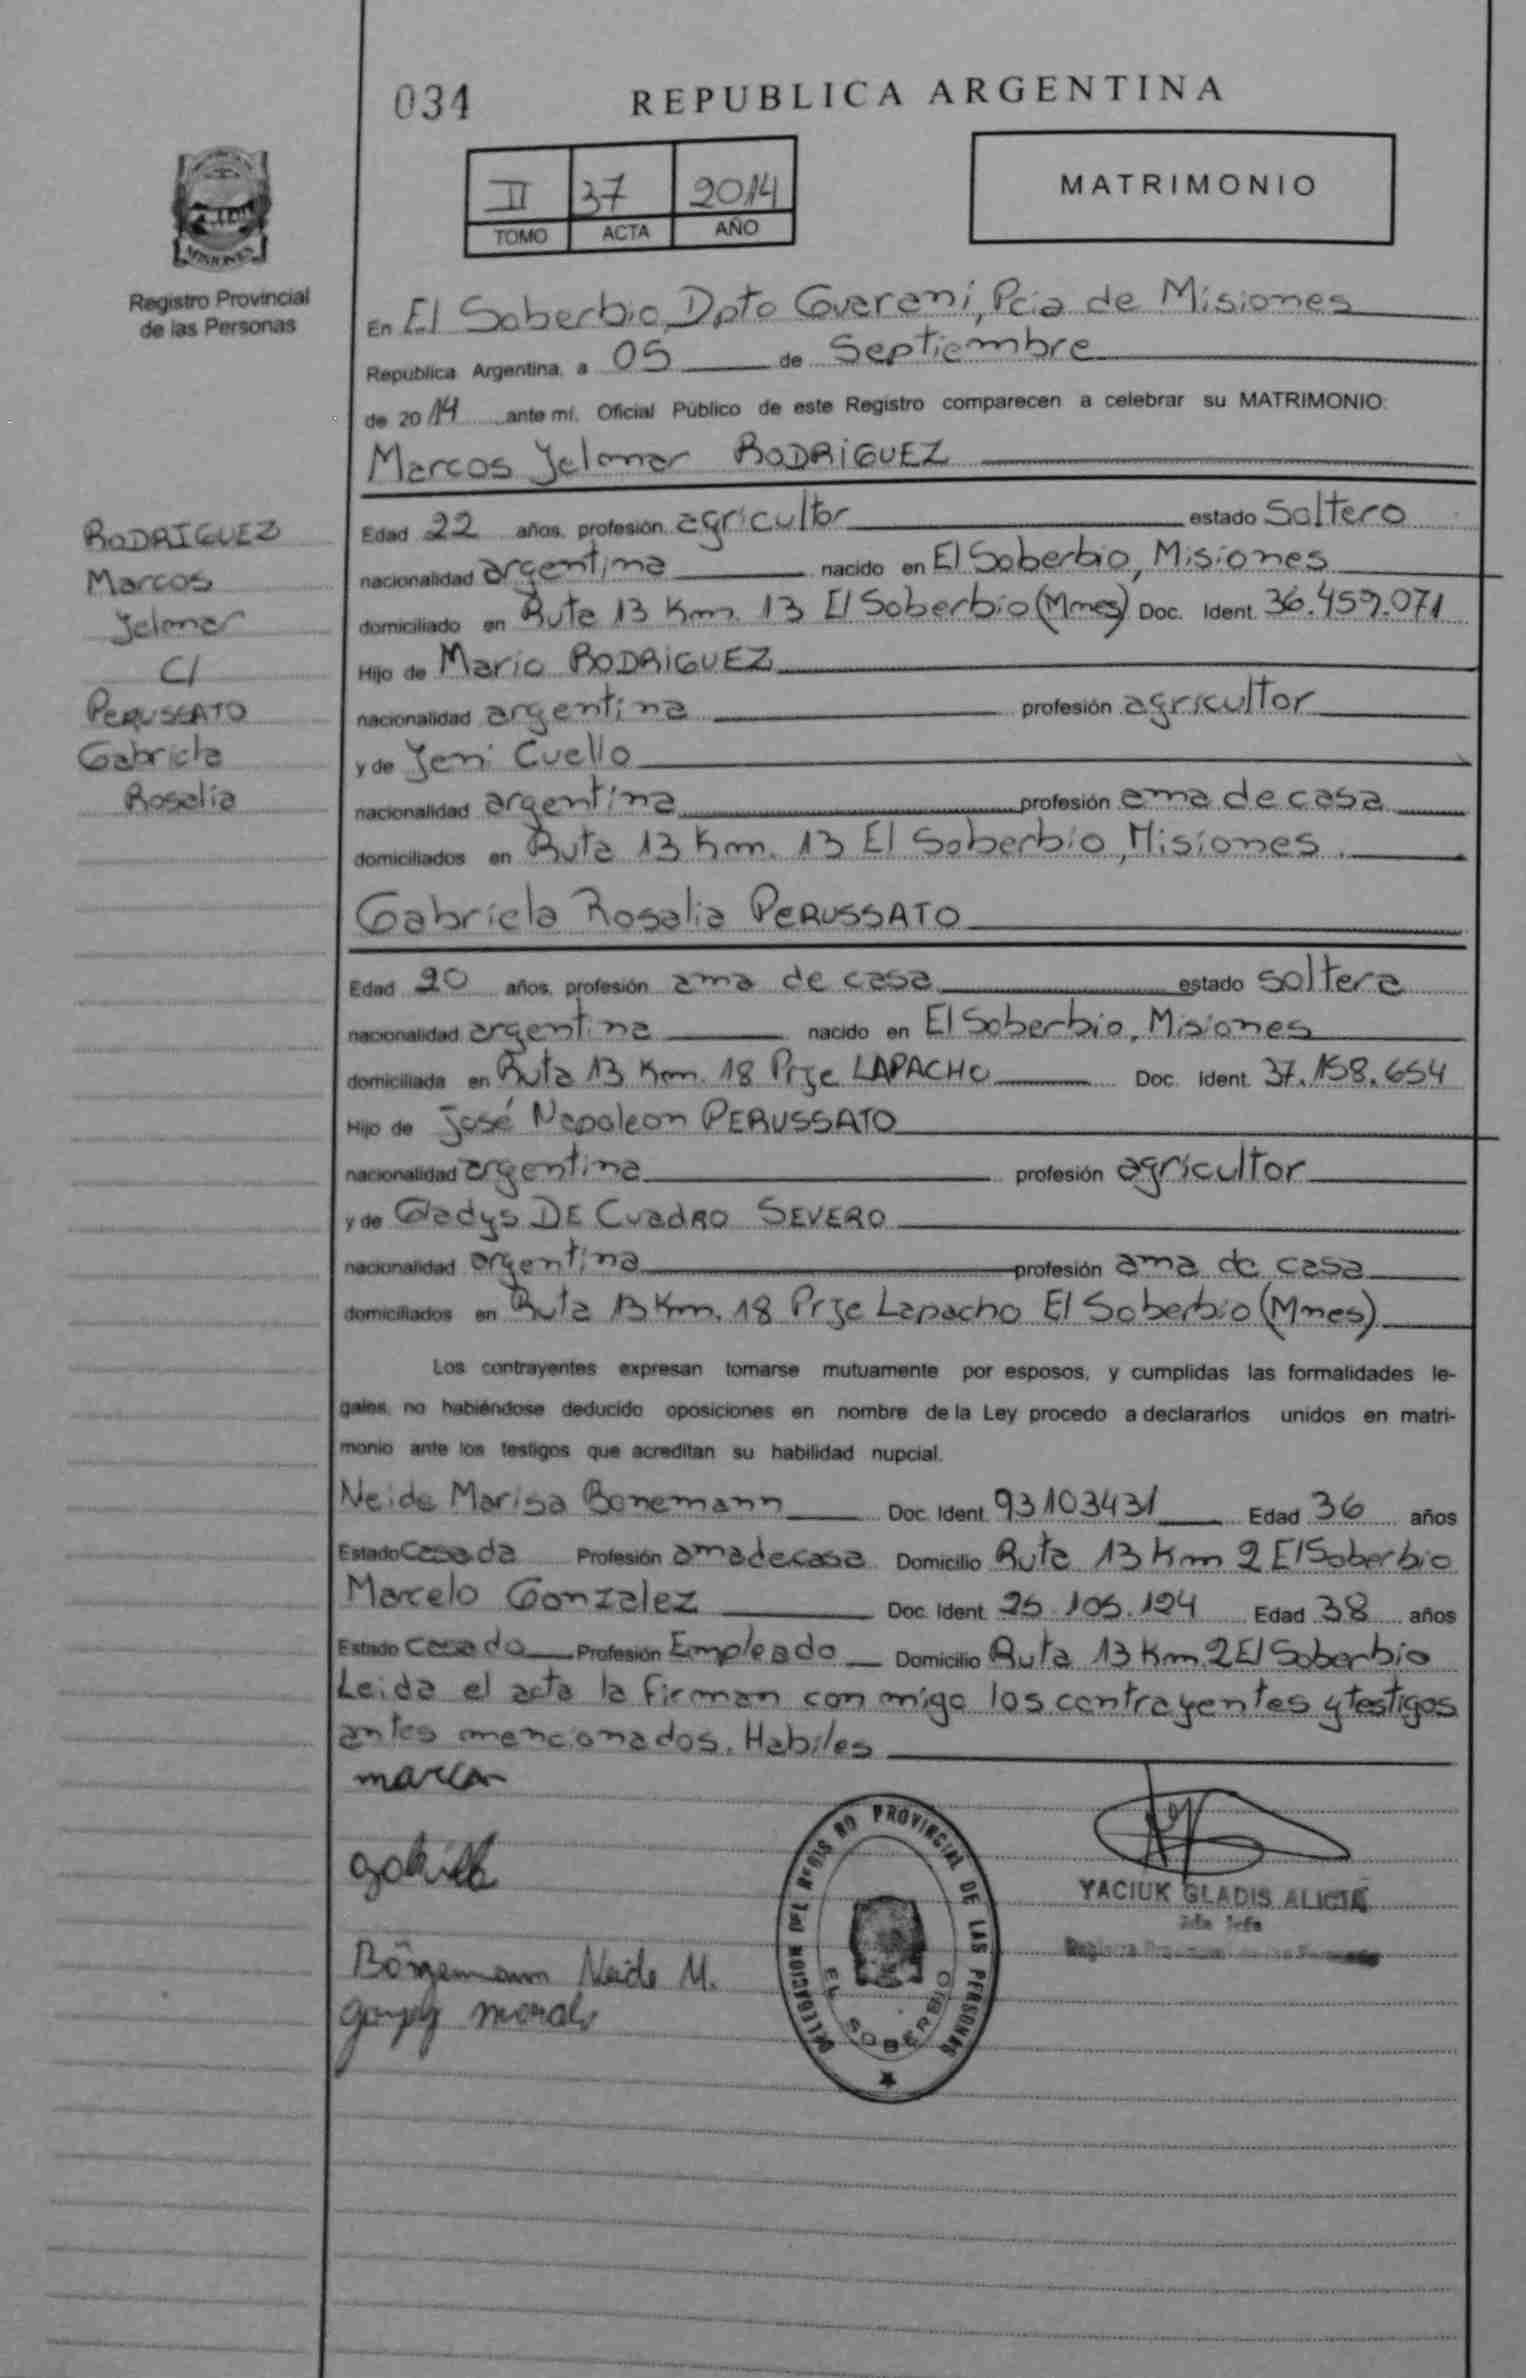 034
REPUBLICA ARGENTINA
II 37 2014
TOMO ACTA AÑO
MATRIMONIO
MISIONES
Registro Provincial
de las Personas
En El Soberbio, Dpto Guarani, Pcia de Misiones
Republica Argentina, a 05 de Septiembre
de 2014 ante mí, Oficial Público de este Registro comparecen a celebrar su MATRIMONIO:
Marcos Jelomar RODRIGUEZ
Edad 22 años, profesión agricultor estado Soltero
nacionalidad argentina nacido en El Soberbio, Misiones
domiciliado en Ruta 13 Km. 13 El Soberbio (Mnes) Doc. Ident. 36.459.071
Hijo de Mario RODRIGUEZ
nacionalidad argentina profesión agricultor
y de Jeni Cuello
nacionalidad argentina profesión ama de casa
domiciliados en Ruta 13 Km. 13 El Soberbio, Misiones.
RODRIGUEZ
Marcos
Jelomar
C/
PERUSSATO
Gabriela
Rosalia
Gabriela Rosalia PERUSSATO
Edad 20 años, profesión ama de casa estado soltera
nacionalidad argentina nacido en El Soberbio, Misiones
domiciliada en Ruta 13 Km. 18 Prje LAPACHO Doc. Ident. 37.158.654
Hijo de José Napoleon PERUSSATO
nacionalidad argentina profesión agricultor
y de Gladys DE CUADRO SEVERO
nacionalidad argentina profesión ama de casa
domiciliados en Ruta 13 Km. 18 Prje Lapacho El Soberbio (Mnes)
Los contrayentes expresan tomarse mutuamente por esposos, y cumplidas las formalidades le-
gales, no habiéndose deducido oposiciones en nombre de la Ley procedo a declararlos unidos en matri-
monio ante los testigos que acreditan su habilidad nupcial.
Neide Marisa Bonemann Doc. Ident. 93103431 Edad 36 años
Estado Casada Profesión ama de casa Domicilio Ruta 13 Km 2 El Soberbio
Marcelo Gonzalez Doc. Ident. 25.105.124 Edad 38 años
Estado Casado Profesión Empleado Domicilio Ruta 13 Km. 2 El Soberbio
Leida el acta la firman con migo los contrayentes y testigos
antes mencionados. Habiles
DELEGACION DEL REGISTRO PROVINCIAL DE LAS PERSONAS
EL SOBERBIO
YACIUK GLADIS ALICIA
Neide M.